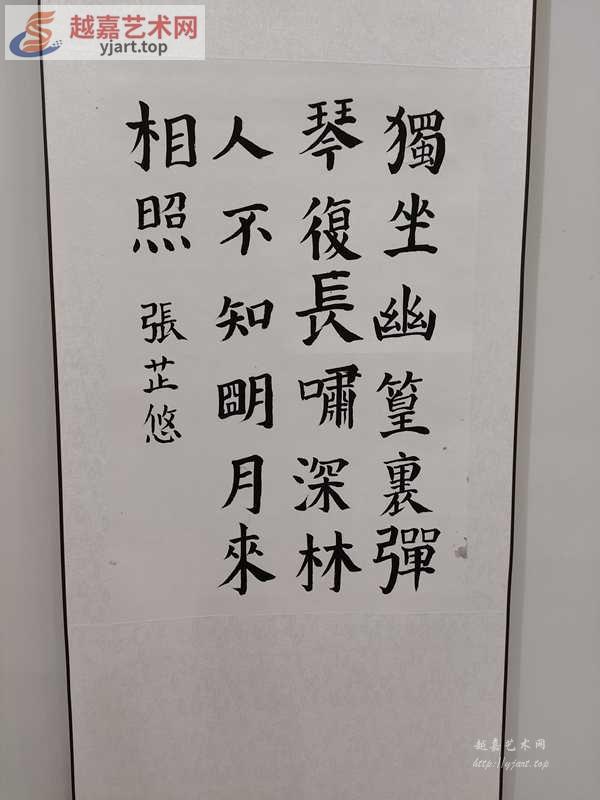 越嘉艺术网
yjart.top
獨坐幽篁裏彈
琴復長嘯深林
人不知明月來
相照
張芷悠
越嘉艺术网
http://yjart.top